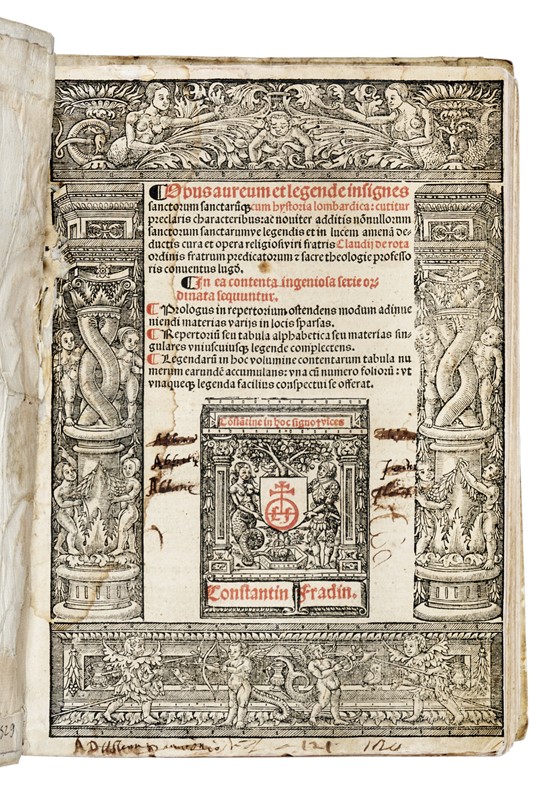 ¶Opus aureum et legende insignes
sanctorum sanctarũq; cum hystoria lombardica: cutitur
preclaris characteribus: ac nouiter additis nõnullorum
sanctorum sanctarumve legendis et in lucem amenã de-
ductis cura et opera religiosi viri fratris Claudij de rota
ordinis fratrum predicatorum ⁊ sacre theologie professo
ris conuentus lugd.
¶In ea contenta ingeniosa serie or-
dinata sequuntur.
¶Prologus in repertorium ostendens modum adinue
niendi materias varijs in locis sparsas.
¶Repertoriũ seu tabula alphabetica seu materias sin-
gulares vniuscuiusq; legende complectens.
¶Legendarũ in hoc volumine contentarum tabula nu
merum earundẽ accumulans: vna cũ numero foliorũ: vt
vnaqueq; legenda facilius conspectui se offerat.
Cõstãtine in hoc signo vices
Constantin Fradin.